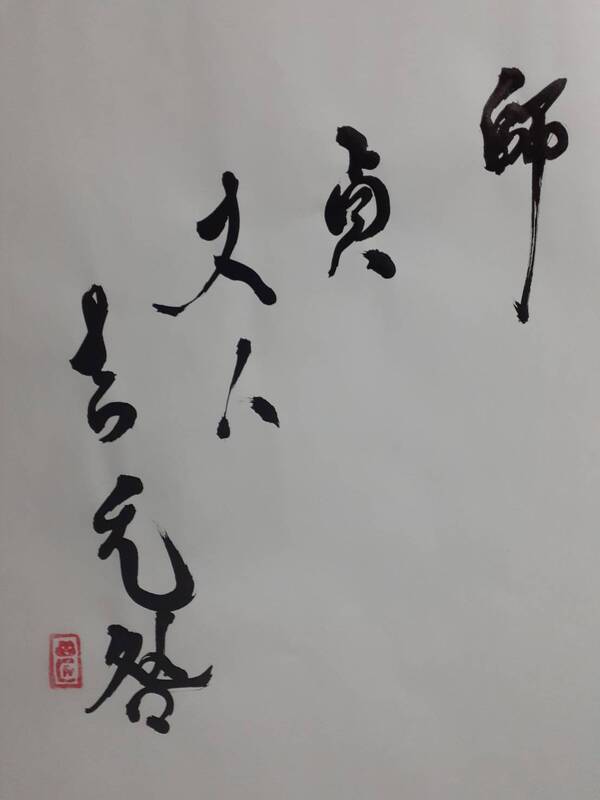 師
貞
丈人
吉无咎